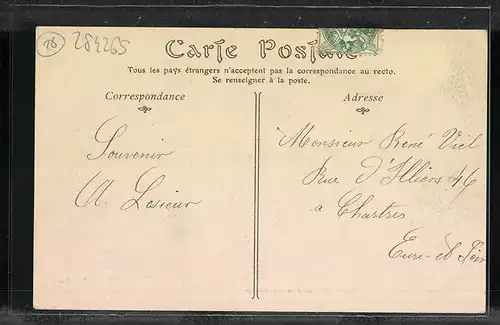 28
284265
Carte Postale
Tous les pays étrangers n'acceptent pas la correspondance au recto.
Se renseigner à la poste.
Correspondance
Adresse
Souvenir
A Lesieur
Monsieur René Viel
Rue d'Illiers 46
a Chartres
Eure-et Loir